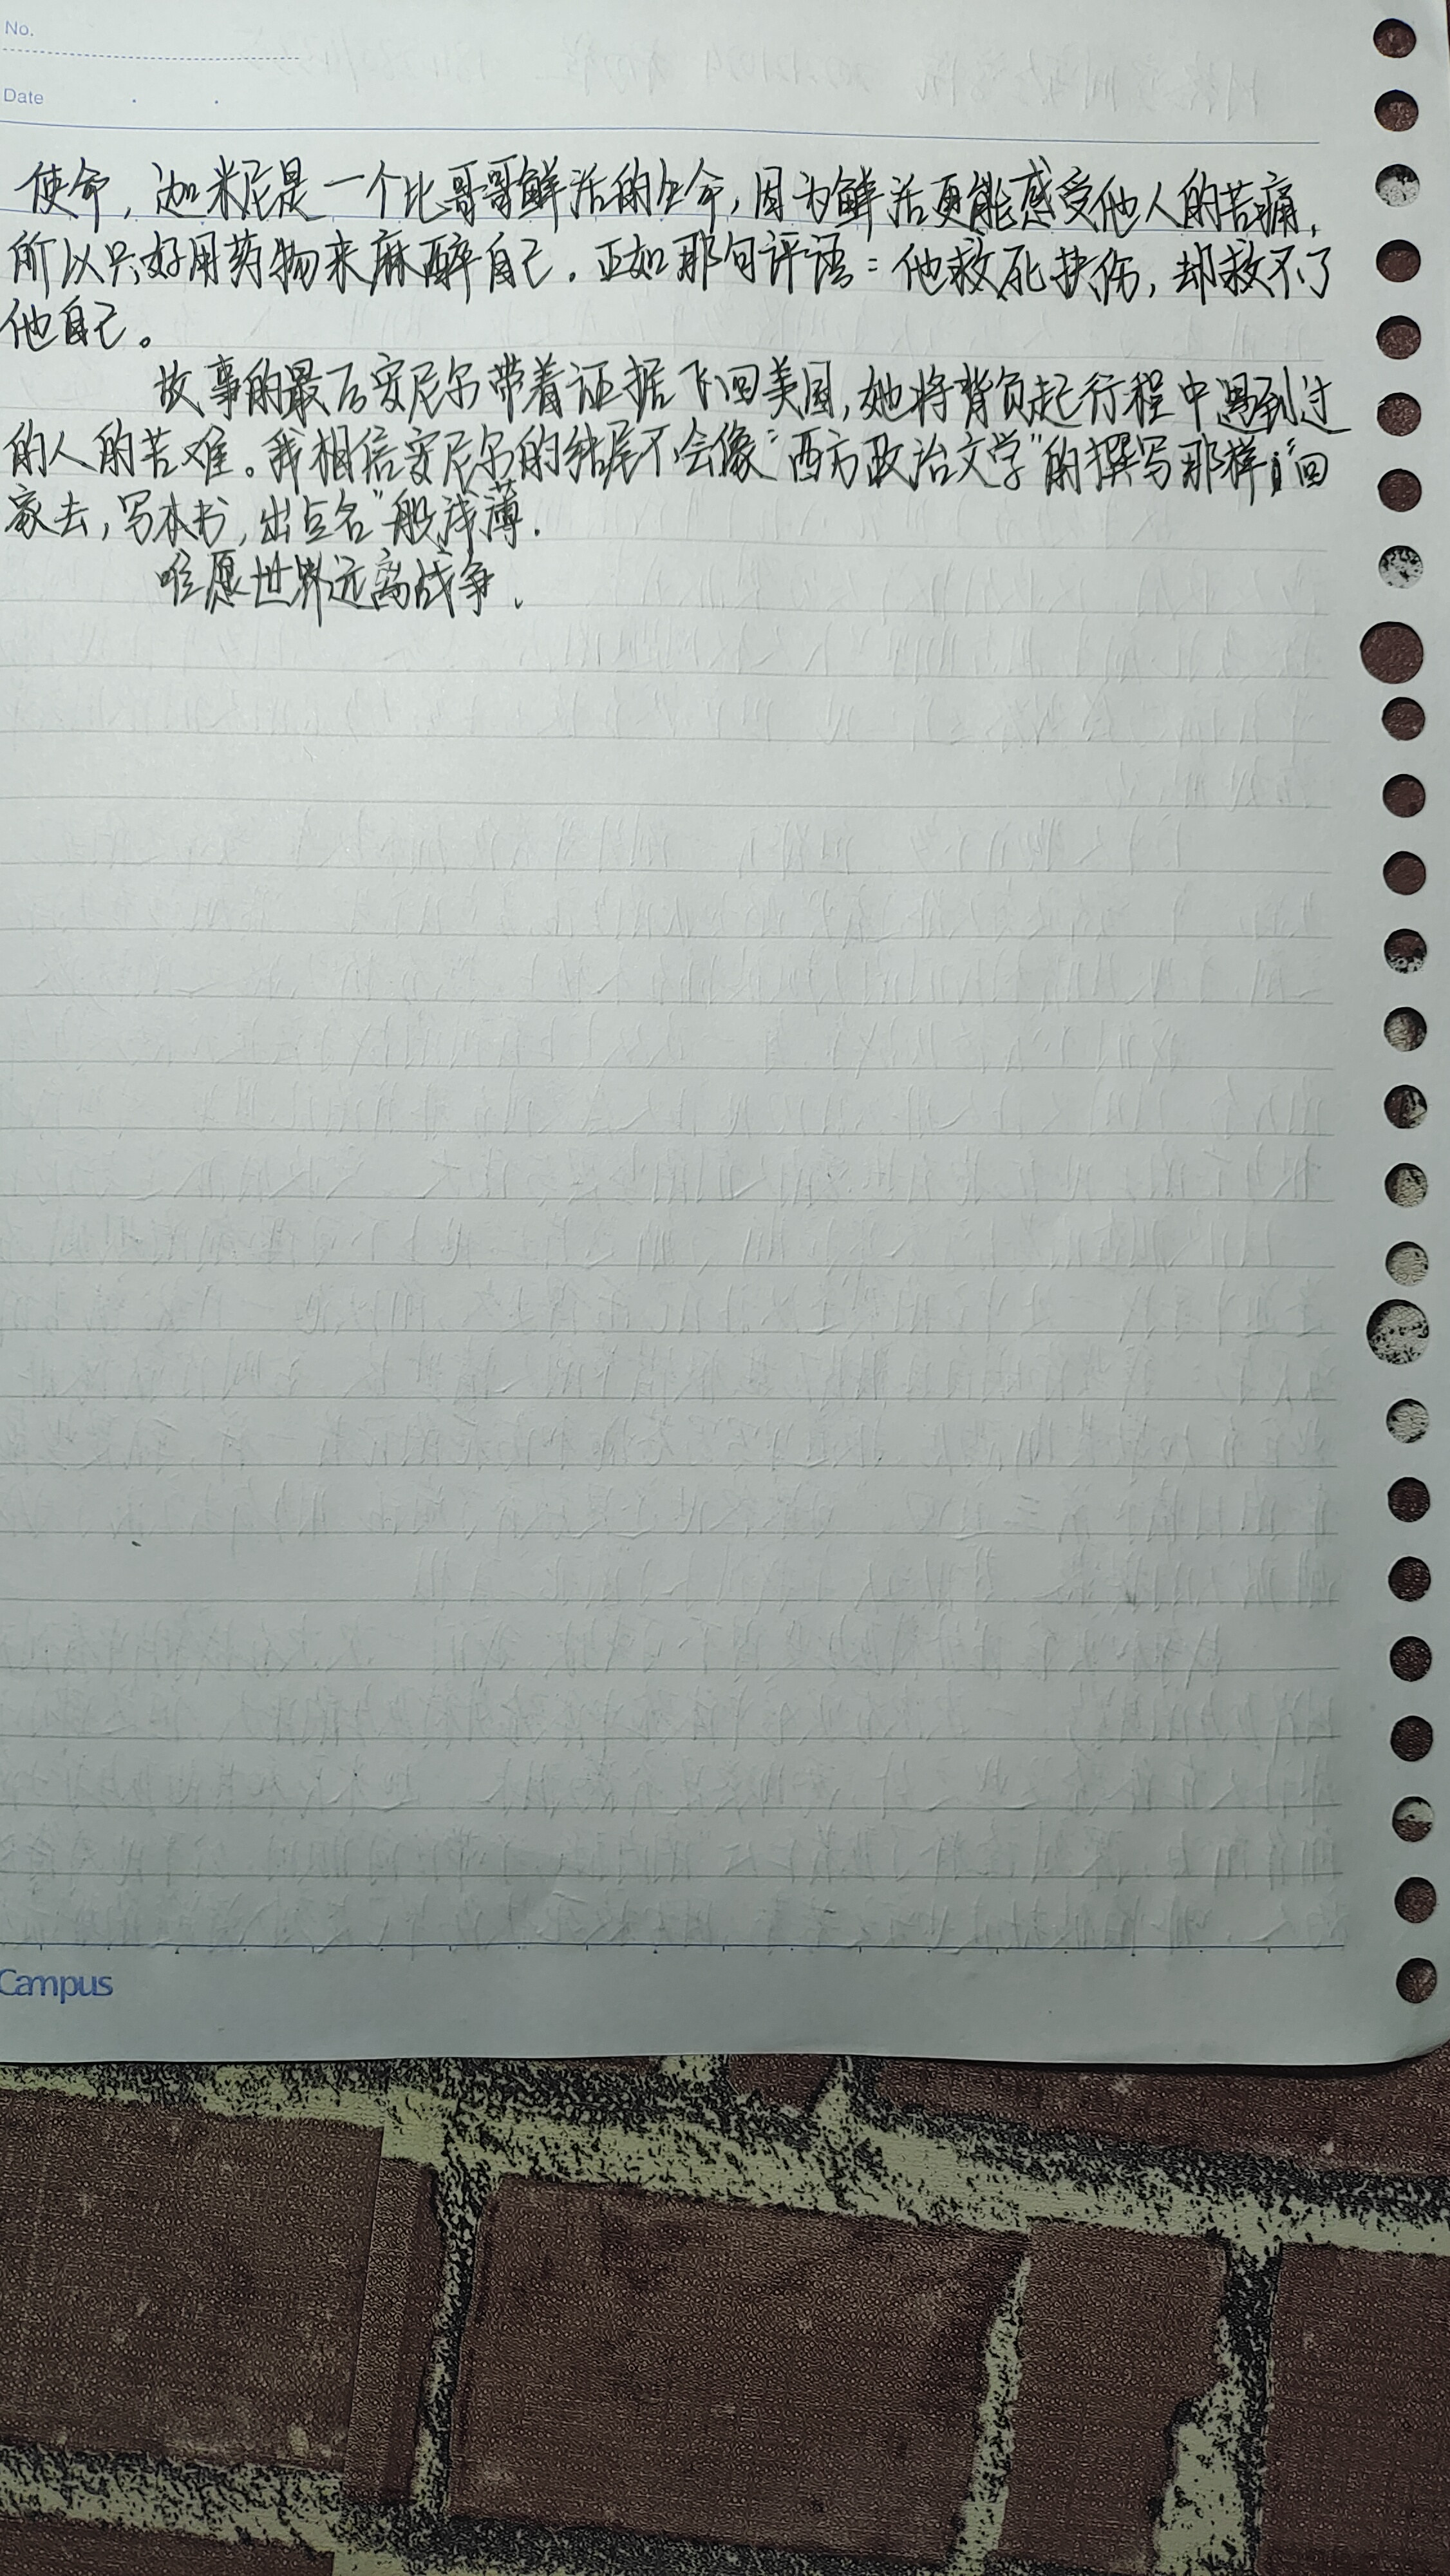 No.
Date
使命，迦米尼是一个比哥哥鲜活的生命，因为鲜活更能感受他人的苦痛，
所以只好用药物来麻醉自己。正如那句评语：他救死扶伤，却救不了
他自己。
故事的最后安尼尔带着证据飞回美国，她将背负起行程中遇到过
的人的苦难。我相信安尼尔的结尾不会像“西方政治文学”的撰写那样“回
家去，写本书，出点名”般浅薄.
唯愿世界远离战争.
Campus